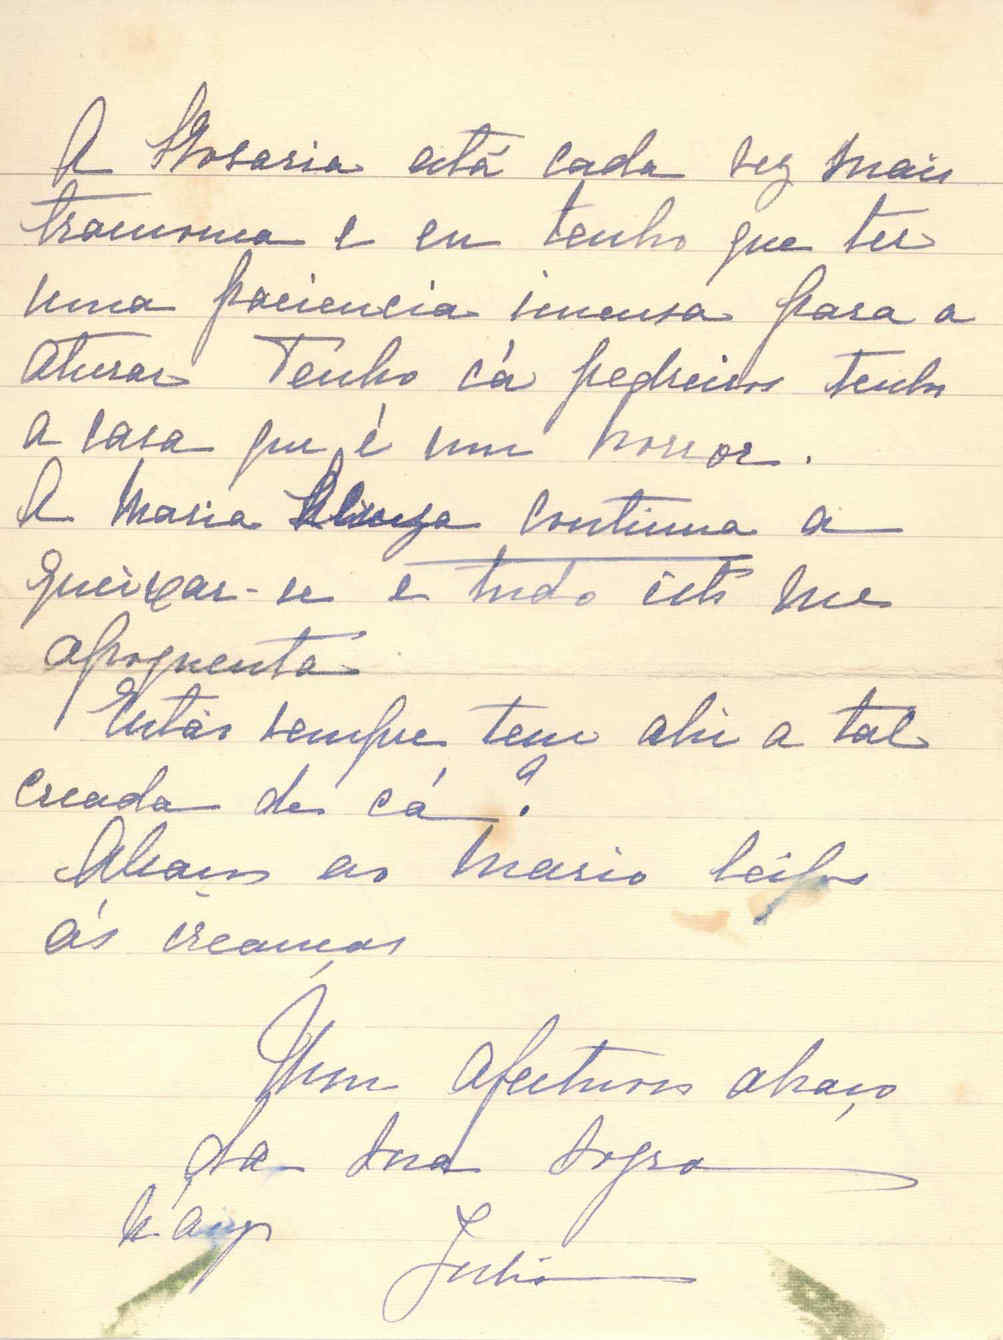 A Rosaria está cada vez mais
tramoma e eu tenho que ter
uma paciencia imensa para a
aturar Tenho cá pedreiros tenho
a casa que é um horror.
A Maria continua a
queixar-se e tudo isto me
apoquenta
Então sempre tem ahi a tal
creada de cá?
Abraços ao Mario beijos
ás creanças
Um afectuoso abraço
da sua sogra
Julia